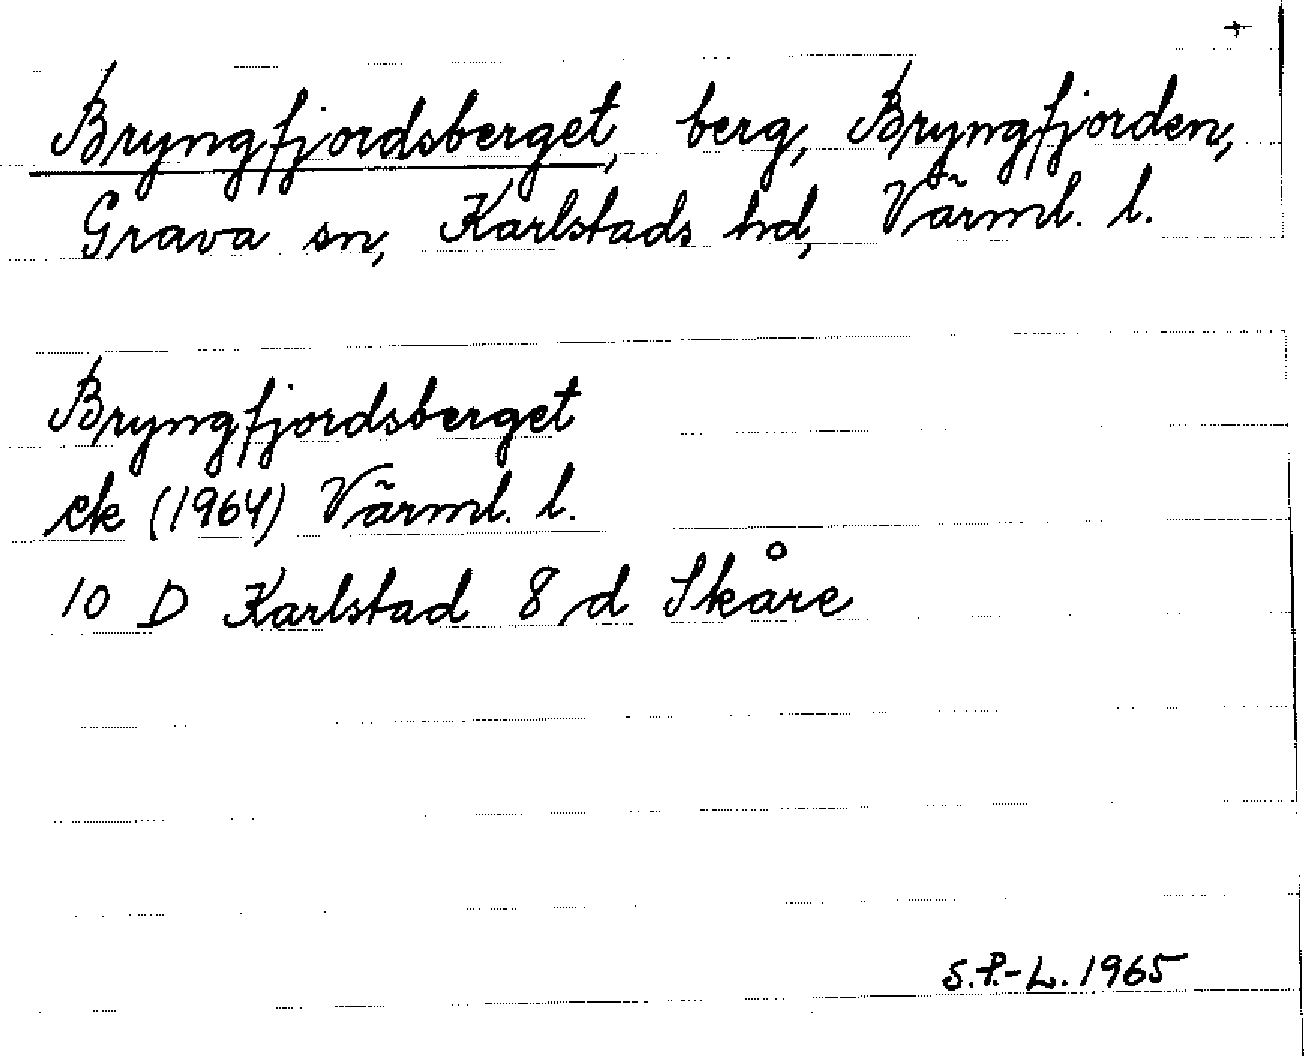 +
Bryngfjordsberget, berg, Bryngfjorden,
Grava sn, Karlstads hd, Värml. l.
Bryngfjordsberget
ek (1964) Värml. l.
10 D Karlstad 8 d Skåre
S.P.-L. 1965